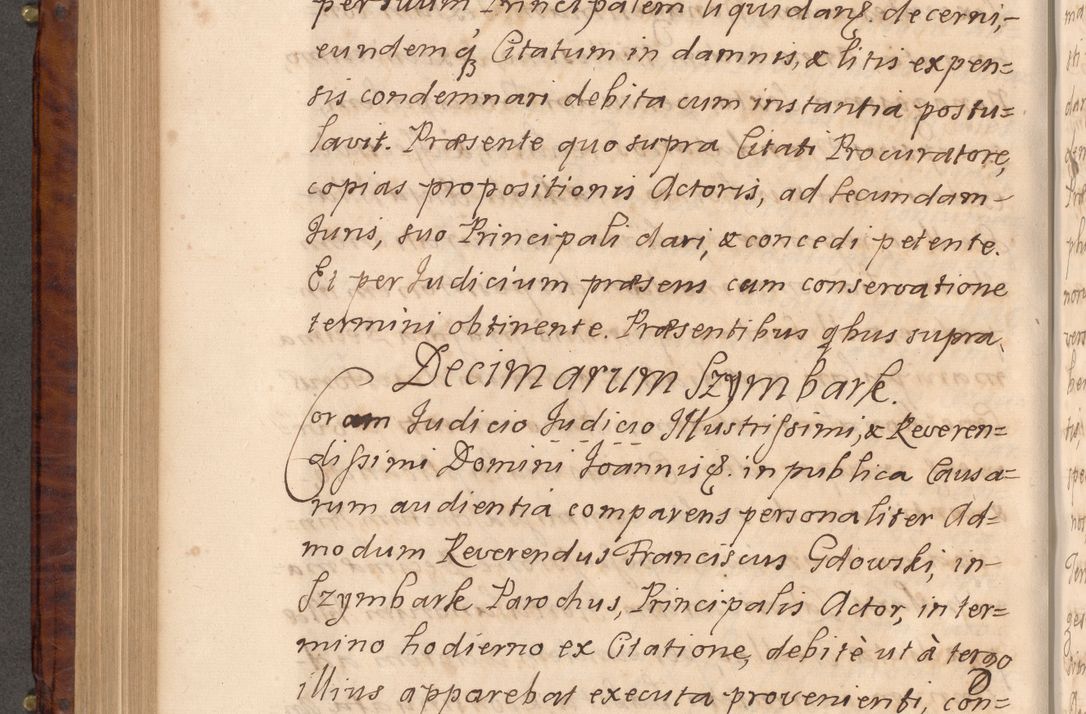 per suum Principalem liquidan. decerni,
eundemq3 Citatum in damnis, & litis expen=
sis condemnari debita cum instantia postu=
lavit. Præsente quo supra Citati Procuratore,
copias propositionis Actoris, ad secundam
Juris, suo Principali dari, & concedi petente.
Et per Judicium præsens cum conservatione
termini obtinente. Præsentibus qbus supra.
Decimarum Szymbark.
Coram Judicio Judicio Illustrissimi, & Reveren=
dissimi Domini Joannis &. in publica Causa=
rum audientia comparens personaliter Ad=
modum Reverendus Franciscus Gdowski, in
Szymbark Parochus, Principalis Actor, in ter=
mino hodierno ex Citatione, debitè ut à tergo
illius apparebat executa provenienti, con=